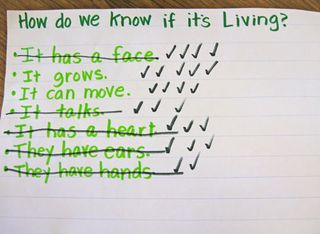 How do we know if it's Living?
• It has a face. ✓ ✓ ✓ ✓
• It grows. ✓ ✓ ✓ ✓ ✓
• It can move. ✓ ✓ ✓ ✓
• It talks. ✓ ✓ ✓
• It has a heart ✓ ✓ ✓
• They have ears. ✓ ✓ ✓
• They have hands. ✓ ✓